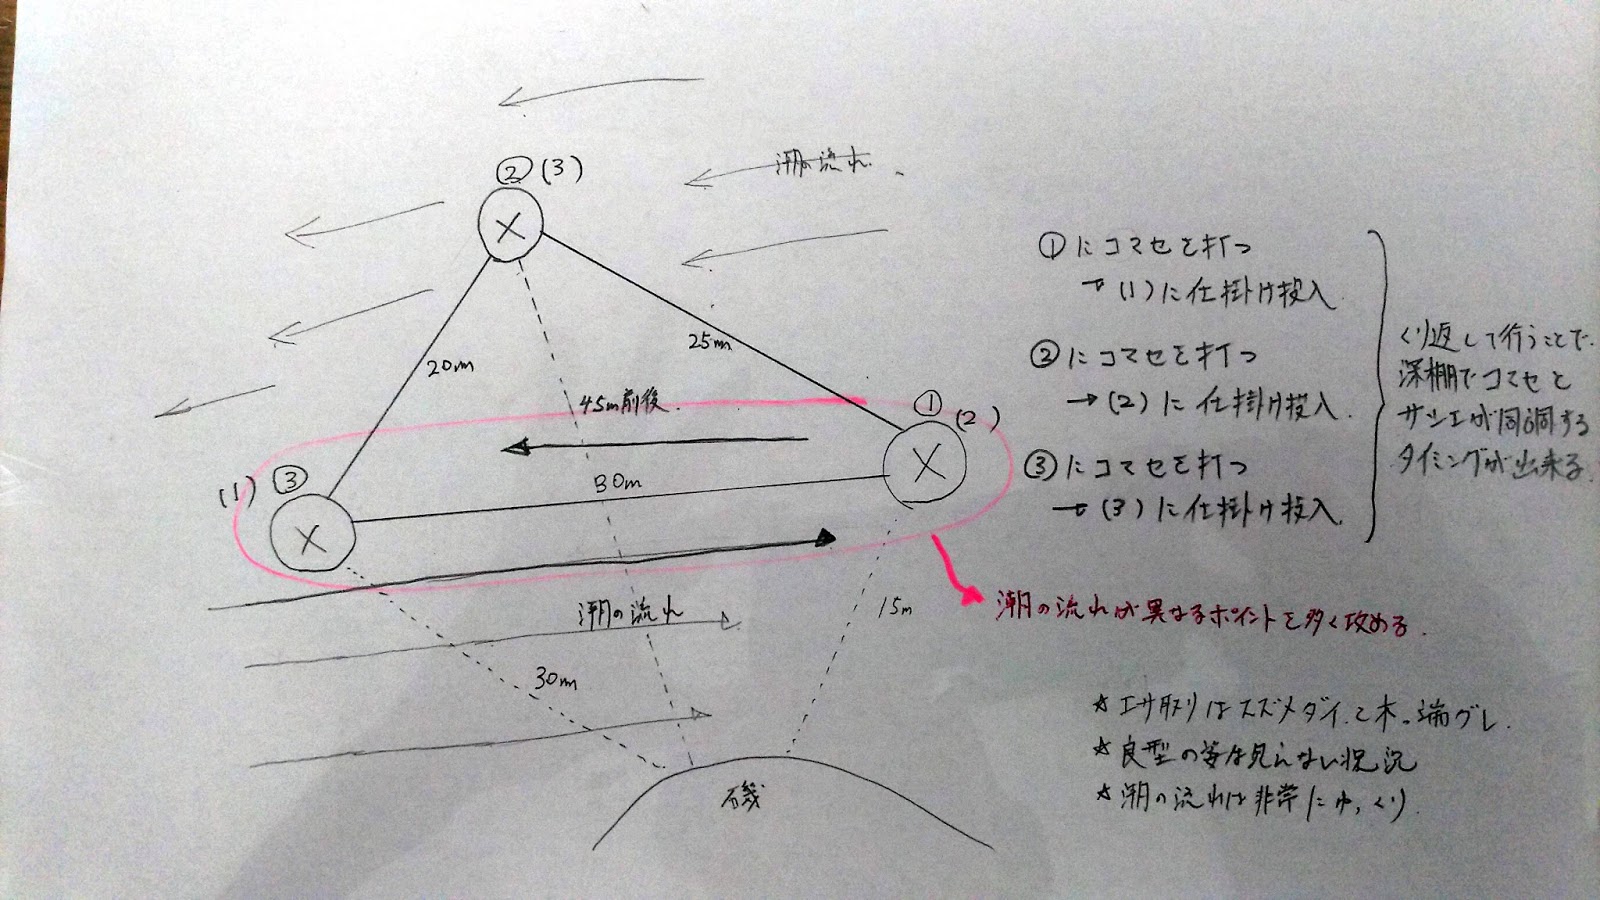 ②(3)
潮の流れ
20m
25m
45m前後.
①
(2)
(1) ③
30m
潮の流れ
15m
30m
磯
①にコマセを打つ
→(1)に仕掛け投入.
②にコマセを打つ
→(2)に仕掛け投入.
③にコマセを打つ
→(3)に仕掛け投入.
くり返して行うことで.
深棚でコマセと
サシエが同調する
タイミングが出来る.
潮の流れが異なるポイントを多く攻める.
☆エサ取りはスズメダイと木っ端グレ.
☆良型の姿は見えない状況
☆潮の流れは非常にゆっくり.